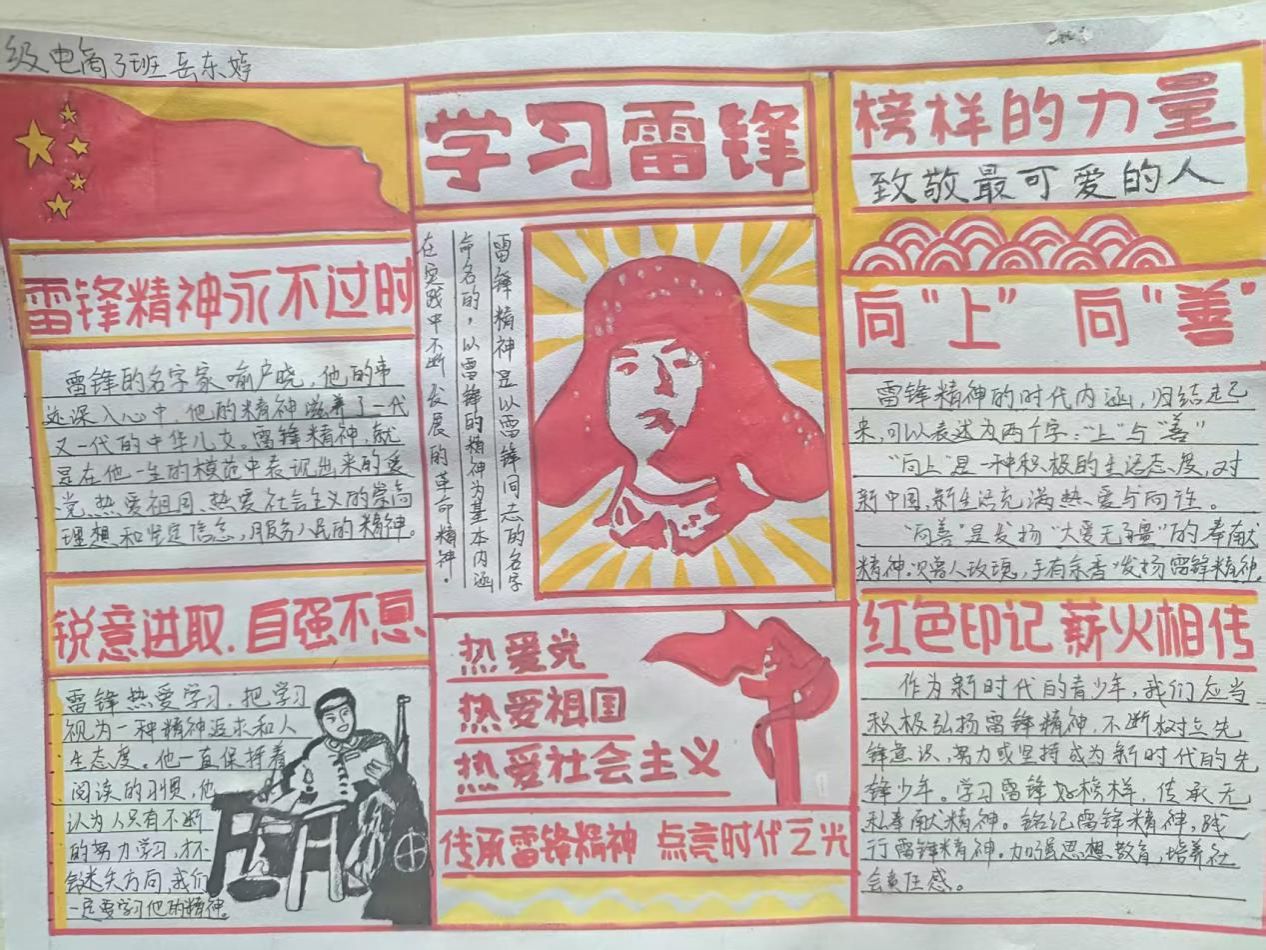 级电商3班岳东婷
雷锋精神永不过时
雷锋的名字家喻户晓，他的事
迹深入心中，他的精神滋养了一代
又一代的中华儿女。雷锋精神，就
是在他一生的模范中表现出来的爱
党、热爱祖国、热爱社会主义的崇高
理想和坚定信念，服务人民的精神。
锐意进取.自强不息
雷锋热爱学习，把学习
视为一种精神追求和人
生态度。他一直保持着
阅读的习惯，他
认为人只有不断
的努力学习，才不
会迷失方向，我们
一定要学习他的精神。
学习雷锋
雷锋精神是以雷锋同志的名字
命名的，以雷锋的精神为基本内涵
在实践中不断发展的革命精神。
热爱党
热爱祖国
热爱社会主义
传承雷锋精神 点亮时代之光
榜样的力量
致敬最可爱的人
向"上" 向"善"
雷锋精神的时代内涵，归结起
来，可以表达为两个字："上"与"善"
"向上"是一种积极的生活态度，对
新中国，新生活充满热爱与向往。
"向善"是发扬"大爱无疆"的奉献
精神。赠人玫瑰，手有余香，发扬雷锋精神。
红色印记 薪火相传
作为新时代的青少年，我们应当
积极弘扬雷锋精神，不断树立先
锋意识，努力或坚持成为新时代的先
锋少年。学习雷锋好榜样，传承无
私奉献精神。铭记雷锋精神，践
行雷锋精神。加强思想教育，培养社
会责任感。